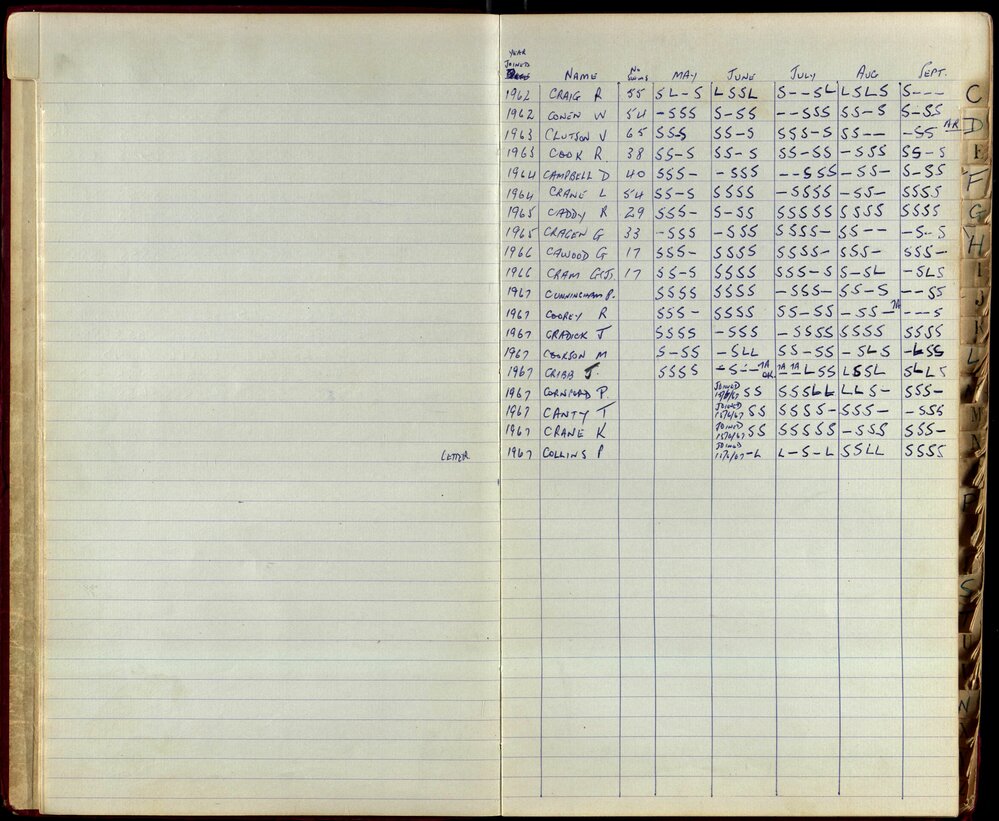 YEAR
JOINED
NAME No SWIMS MAY JUNE JULY AUG SEPT.
1962 CRAIG R 55 SL-S LSSL S--SL LSLS S---
1962 COHEN W 54 -SSS S-SS --SSS SS-S S-SS
1963 CLUTSON V 65 SSS SS-S SSS-S SS-- -SS AR
1963 COOK R. 38 SS-S SS-S SS-SS -SSS SS-S
1964 CAMPBELL D 40 SSS- -SSS --SSS -SS- S-SS
1964 CRANE L 54 SS-S SSSS -SSSS -SS- SSSS
1965 CADDY R 29 SSS- S-SS SSSSS SSSS SSSS
1965 CRAGEN G 33 -SSS -SSS SSSS- SS-- -S-S
1966 CAWOOD G 17 SSS- SSSS -SSSS SSS- SSS-
1966 CRAM 17 SS-S SSSS SSS-S S-SL -SLS
1967 CUNNINGHAM P. SSSS SSSS -SSS- SS-S --SS
1967 COOREY R SSS- SSSS SS-SS -SS- ---S
1967 CRADICK J SSSS -SSS -SSSS SSSS SSSS
1967 COOKSON M S-SS -SLL SS-SS -SLS -LSS
1967 CRIBB J. SSSS -S-- LSS LSSL SLLS
1967 CORNFORD P. JOINED SS SSSLL LLS- SSS-
1967 CANTY T JOINED 15/6/67 SS SSSS- SSS- -SSS
1967 CRANE K JOINED 15/6/67 SS SSSSS -SSS SSS-
LETTER 1967 COLLINS P JOINED -L L-S-L SSLL SSSS
C
D
E
F
G
H
I
J
K
L
M
N
P
S
T
W